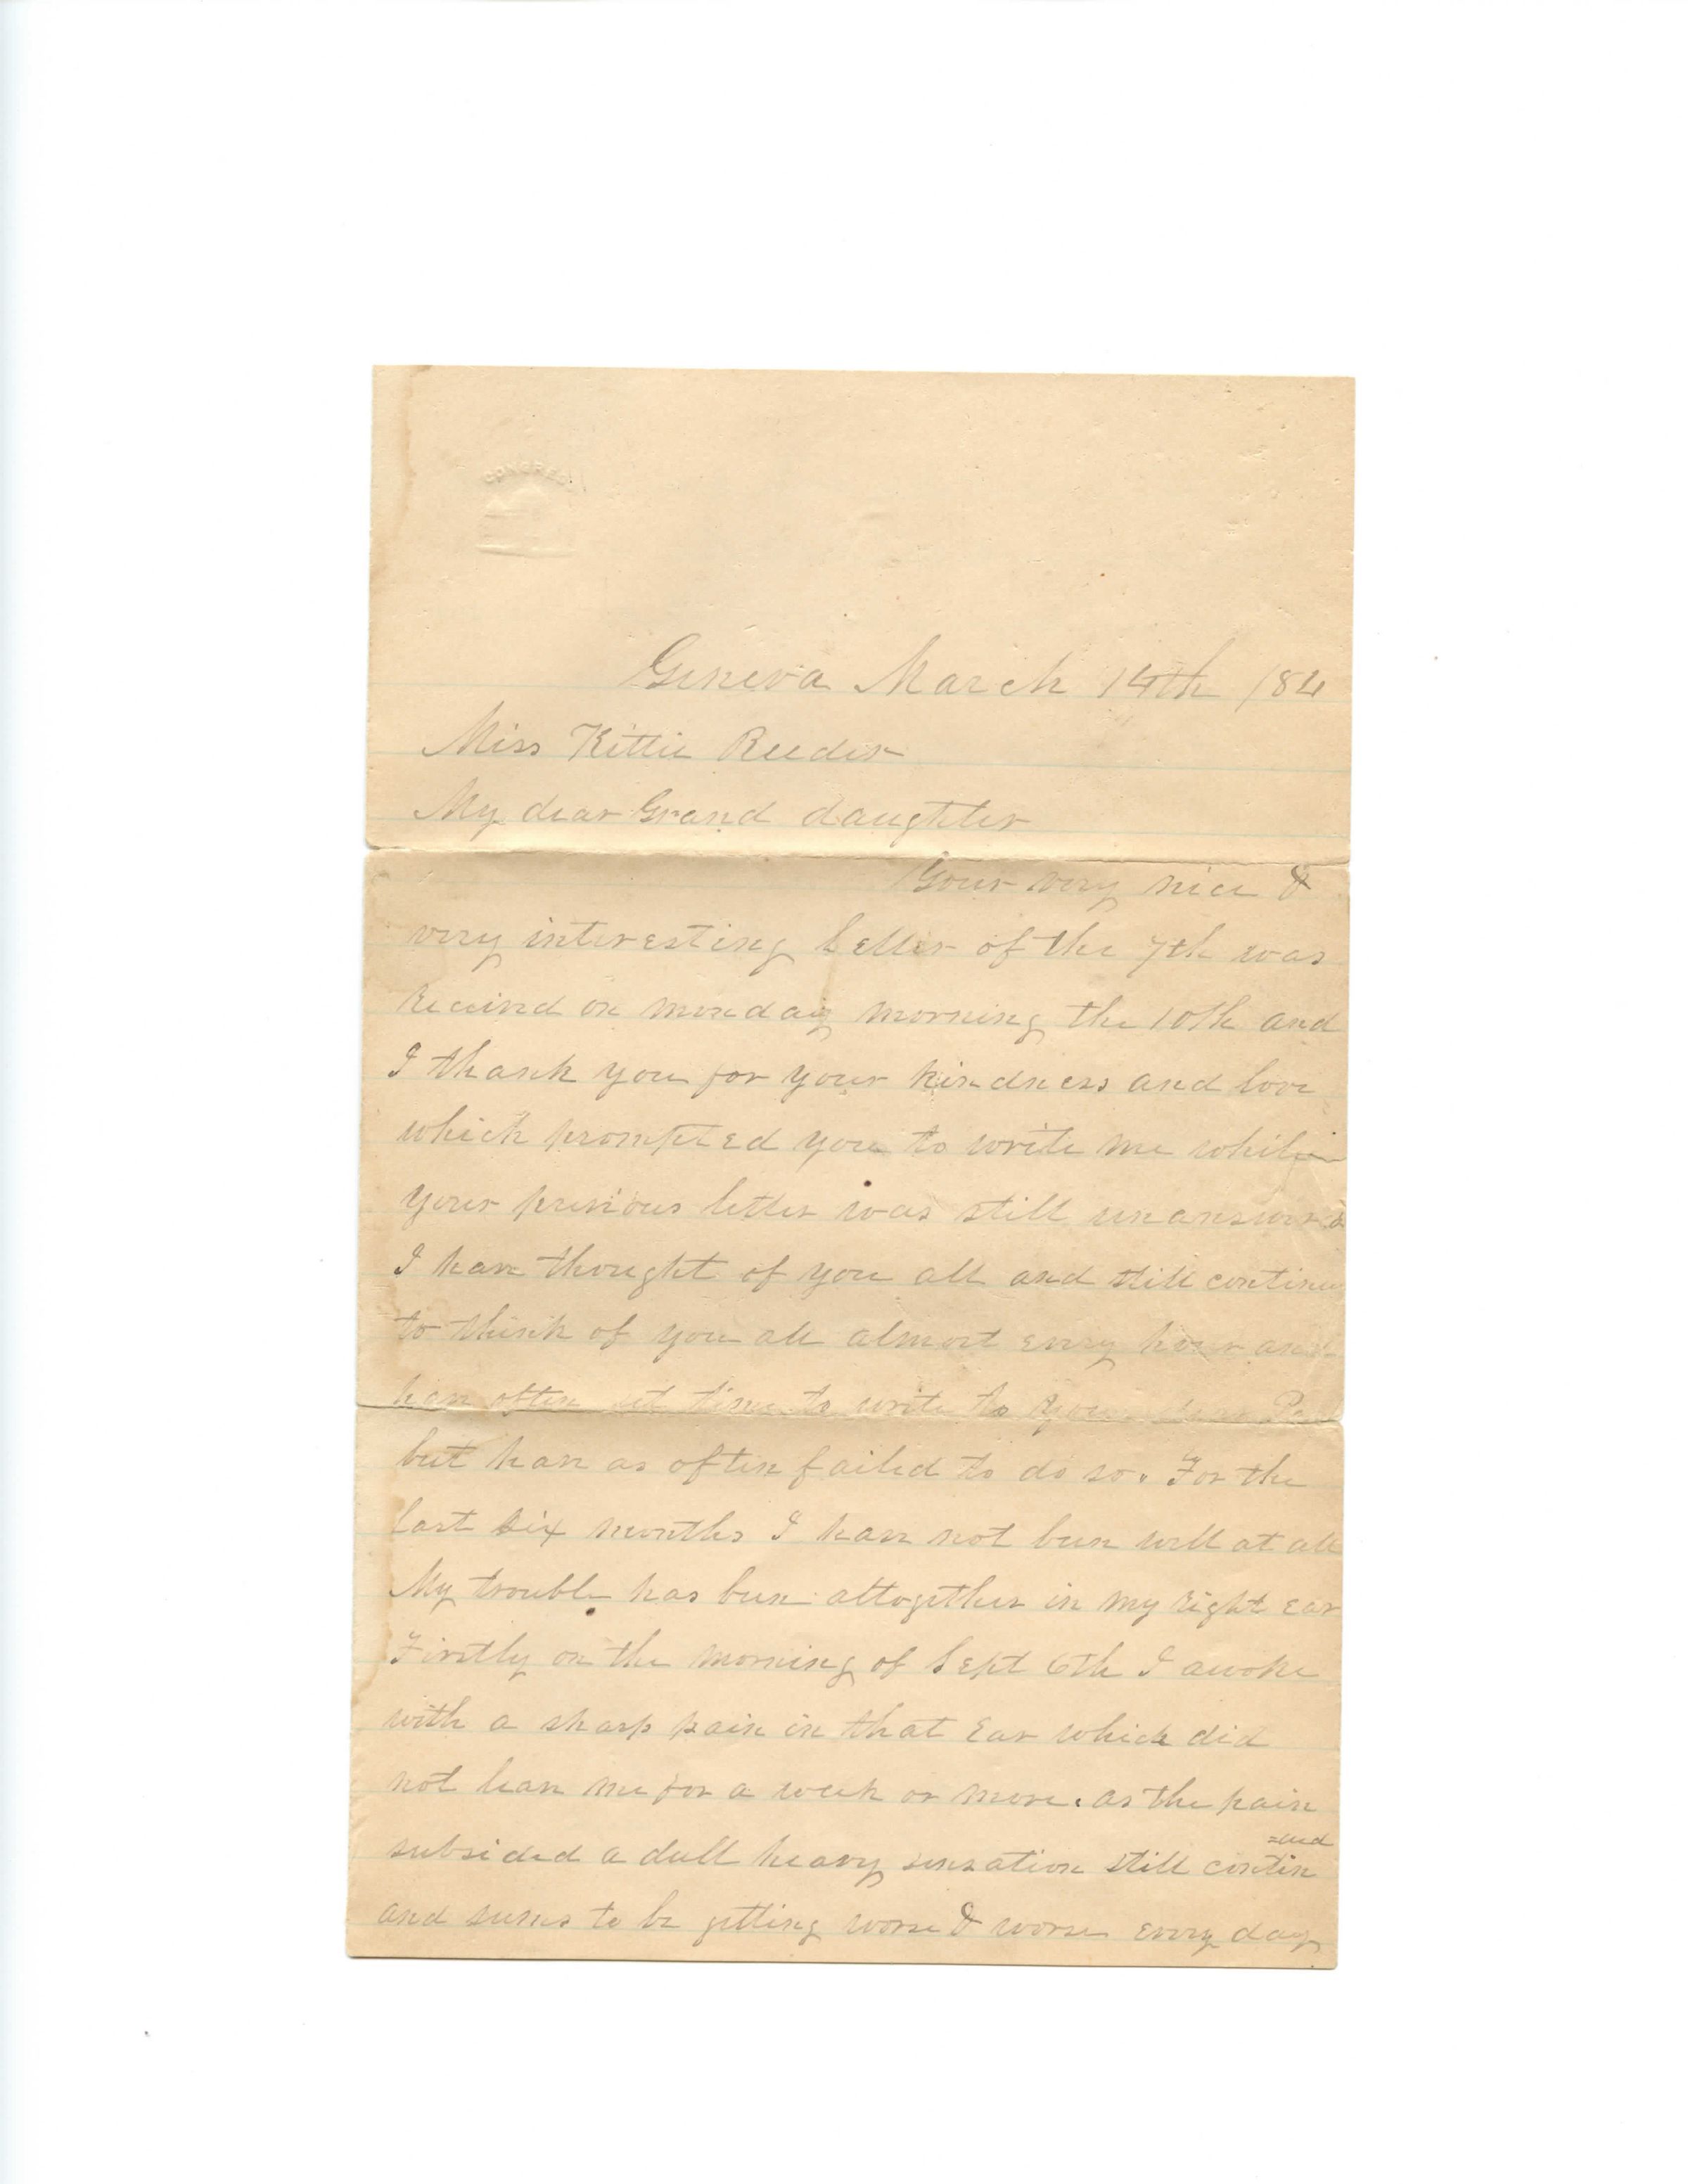 CONGRESS
Geneva March 14th /84
Miss Kittie Reeder
My dear Grand daughter
Your very nice &
very interesting letter of the 7th was
received on monday morning the 10th and
I thank you for your kindness and love
which prompted you to write me while
your previous letter was still unanswered
I have thought of you all and still continue
to think of you all almost every hour and
have often set time to write to your dear Pa
but have as often failed to do so. For the
last six months I have not been well at all
My trouble has been altogether in my right ear
Firstly on the morning of Sept 6th I awoke
with a sharp pain in that Ear which did
not leave me for a week or more. as the pain
=ued
subsided a dull heavy sensation still contin
and seems to be getting worse & worse every day